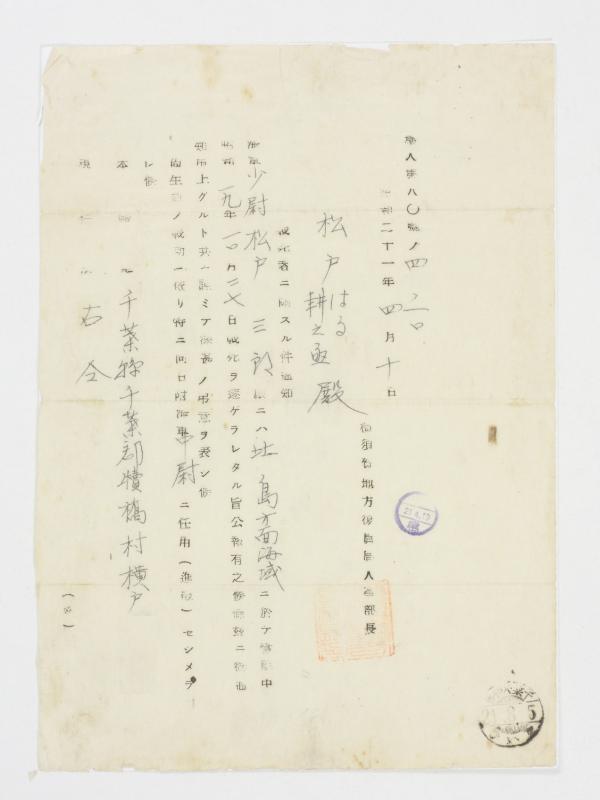 人第八〇號ノ四
昭和二十一年四月十日
横須賀地方復員局人事部長
松戸はる
耕之亟殿
戦死者ニ関スル件通知
海軍少尉松戸三郎 ニハ 島方面海域ニ於テ 中
昭和一九年一〇月二七日戦死ヲ遂ゲラレタル旨公報有之候條茲ニ御通
知申上グルト共ニ謹ミテ深甚ノ弔意ヲ表シ候
尚生前ノ戦功ニ依リ特ニ同日附海軍中尉ニ任用(進級)セシメラ
レ候
本籍地 千葉縣千葉郡犢橋村横戸
現住所 右仝
(終)